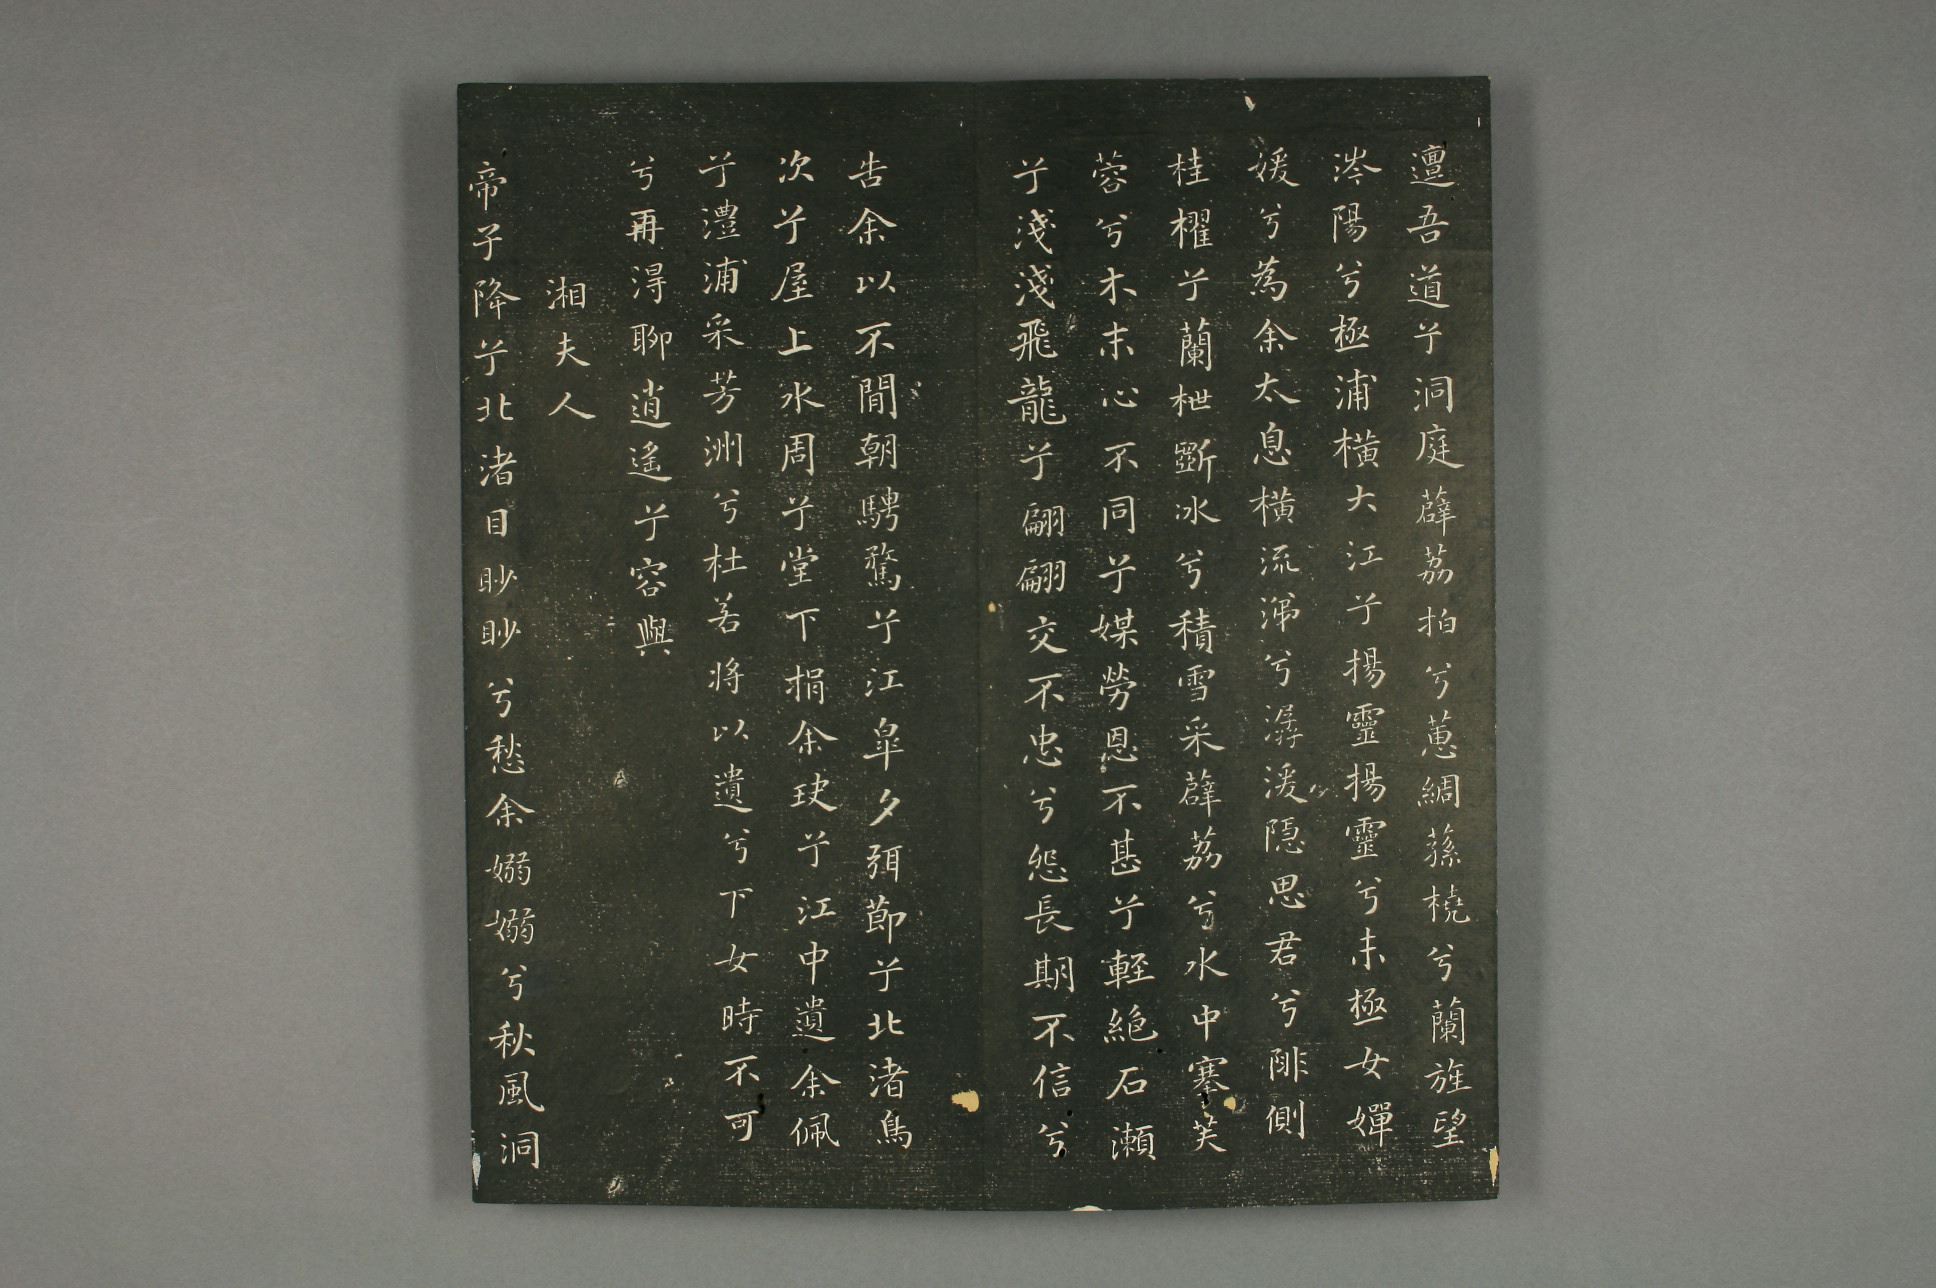 邅吾道兮洞庭薜荔拍兮蕙綢蓀橈兮蘭旌望
涔陽兮極浦橫大江兮揚靈揚靈兮未極女嬋
媛兮為余太息橫流涕兮潺湲隱思君兮陫側
桂櫂兮蘭枻斲冰兮積雪采薜荔兮水中搴芙
蓉兮木末心不同兮媒勞恩不甚兮輕絕石瀨
兮淺淺飛龍兮翩翩交不忠兮怨長期不信兮
告余以不閒朝騁騖兮江皋夕弭節兮北渚鳥
次兮屋上水周兮堂下捐余玦兮江中遺余佩
兮澧浦采芳洲兮杜若將以遺兮下女時不可
兮再得聊逍遙兮容與
湘夫人
帝子降兮北渚目眇眇兮愁余嫋嫋兮秋風洞